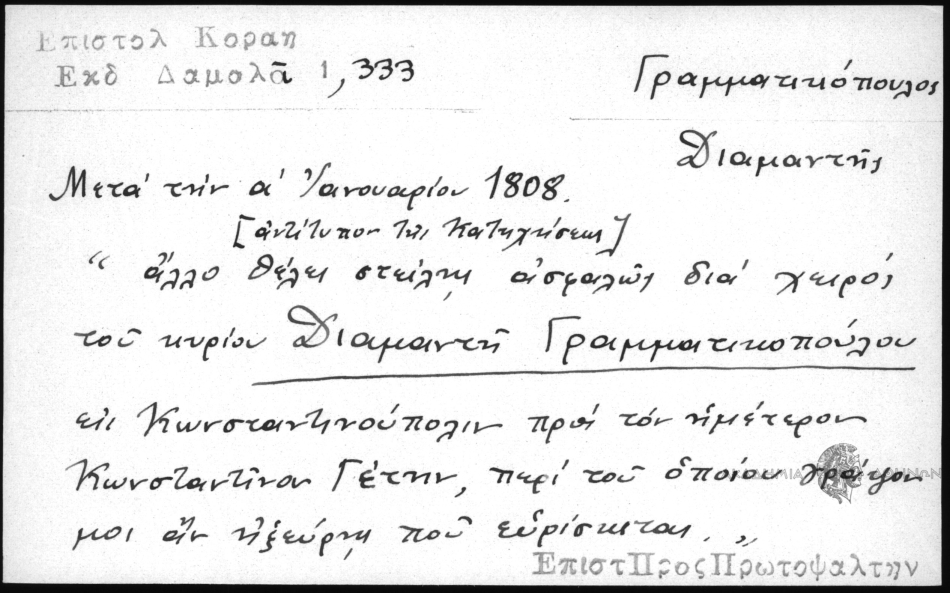 Επιστολ Κοραη
Εκδ Δαμαλᾶ 1, 333
Γραμματικόπουλος
Διαμαντῆς
Μετά τήν α' Ἰανουαρίου 1808.
[ἀντίτυπον τῆς Κατηχήσεως]
“ ἄλλο θέλεις στείλῃ ἀσφαλῶς διά χειρός
τοῦ κυρίου Διαμαντῆ Γραμματικοπούλου
εἰς Κωνσταντινούπολιν πρός τόν ἡμέτερον
Κωνσταντῖνον Γέτην, περί τοῦ ὁποίου γράψον
μοι ἄν ἠξεύρῃς ποῦ εὑρίσκεται. „
ΑΚΑΔΗΜΙΑ ΑΘΗΝΩΝ
ΕπιστΠροςΠρωτοψαλτην